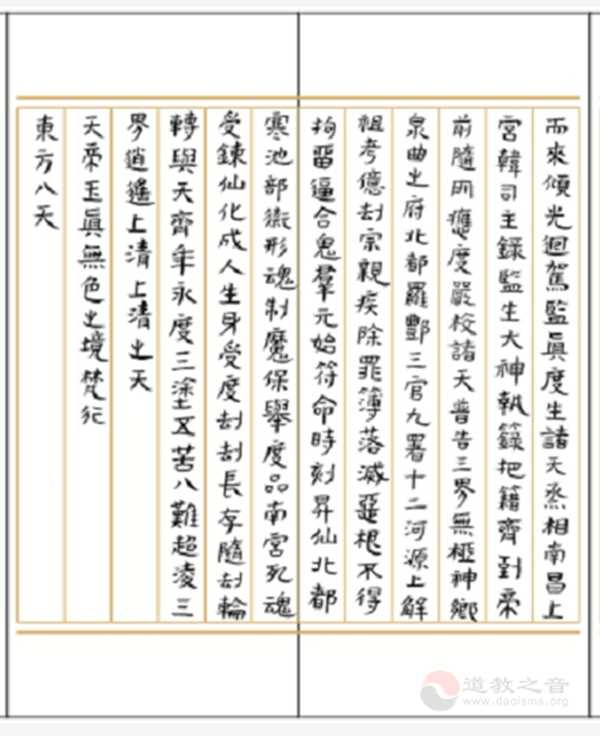 而來傾光迴駕監眞度生諸天丞相南昌上
宮韓司主錄監生大神執籙把籍齊到帝
前隨所應度嚴校諸天普告三界無極神鄉
泉曲之府北都羅酆三官九署十二河源上解
祖考億劫宗親疾除罪簿落滅惡根不得
拘留逼合鬼羣元始符命時刻昇仙北都
寒池部衛形魂制魔保舉度品南宮死魂
受鍊仙化成人生身受度劫劫長存隨劫輪
轉與天齊年永度三塗五苦八難超凌三
界逍遙上清上清之天
天帝玉眞無色之境梵行
東方八天
道教之音
www.daoisms.org